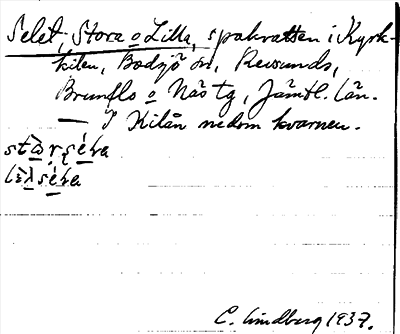 Selet, Stora o Lilla, spakvatten i Kyrk-
kilen, Bodsjö sn, Revsunds,
Brunflo o Näs tg, Jämtl. län.
— I Kilån nedom kvarnen.
C. Lindberg 1937.